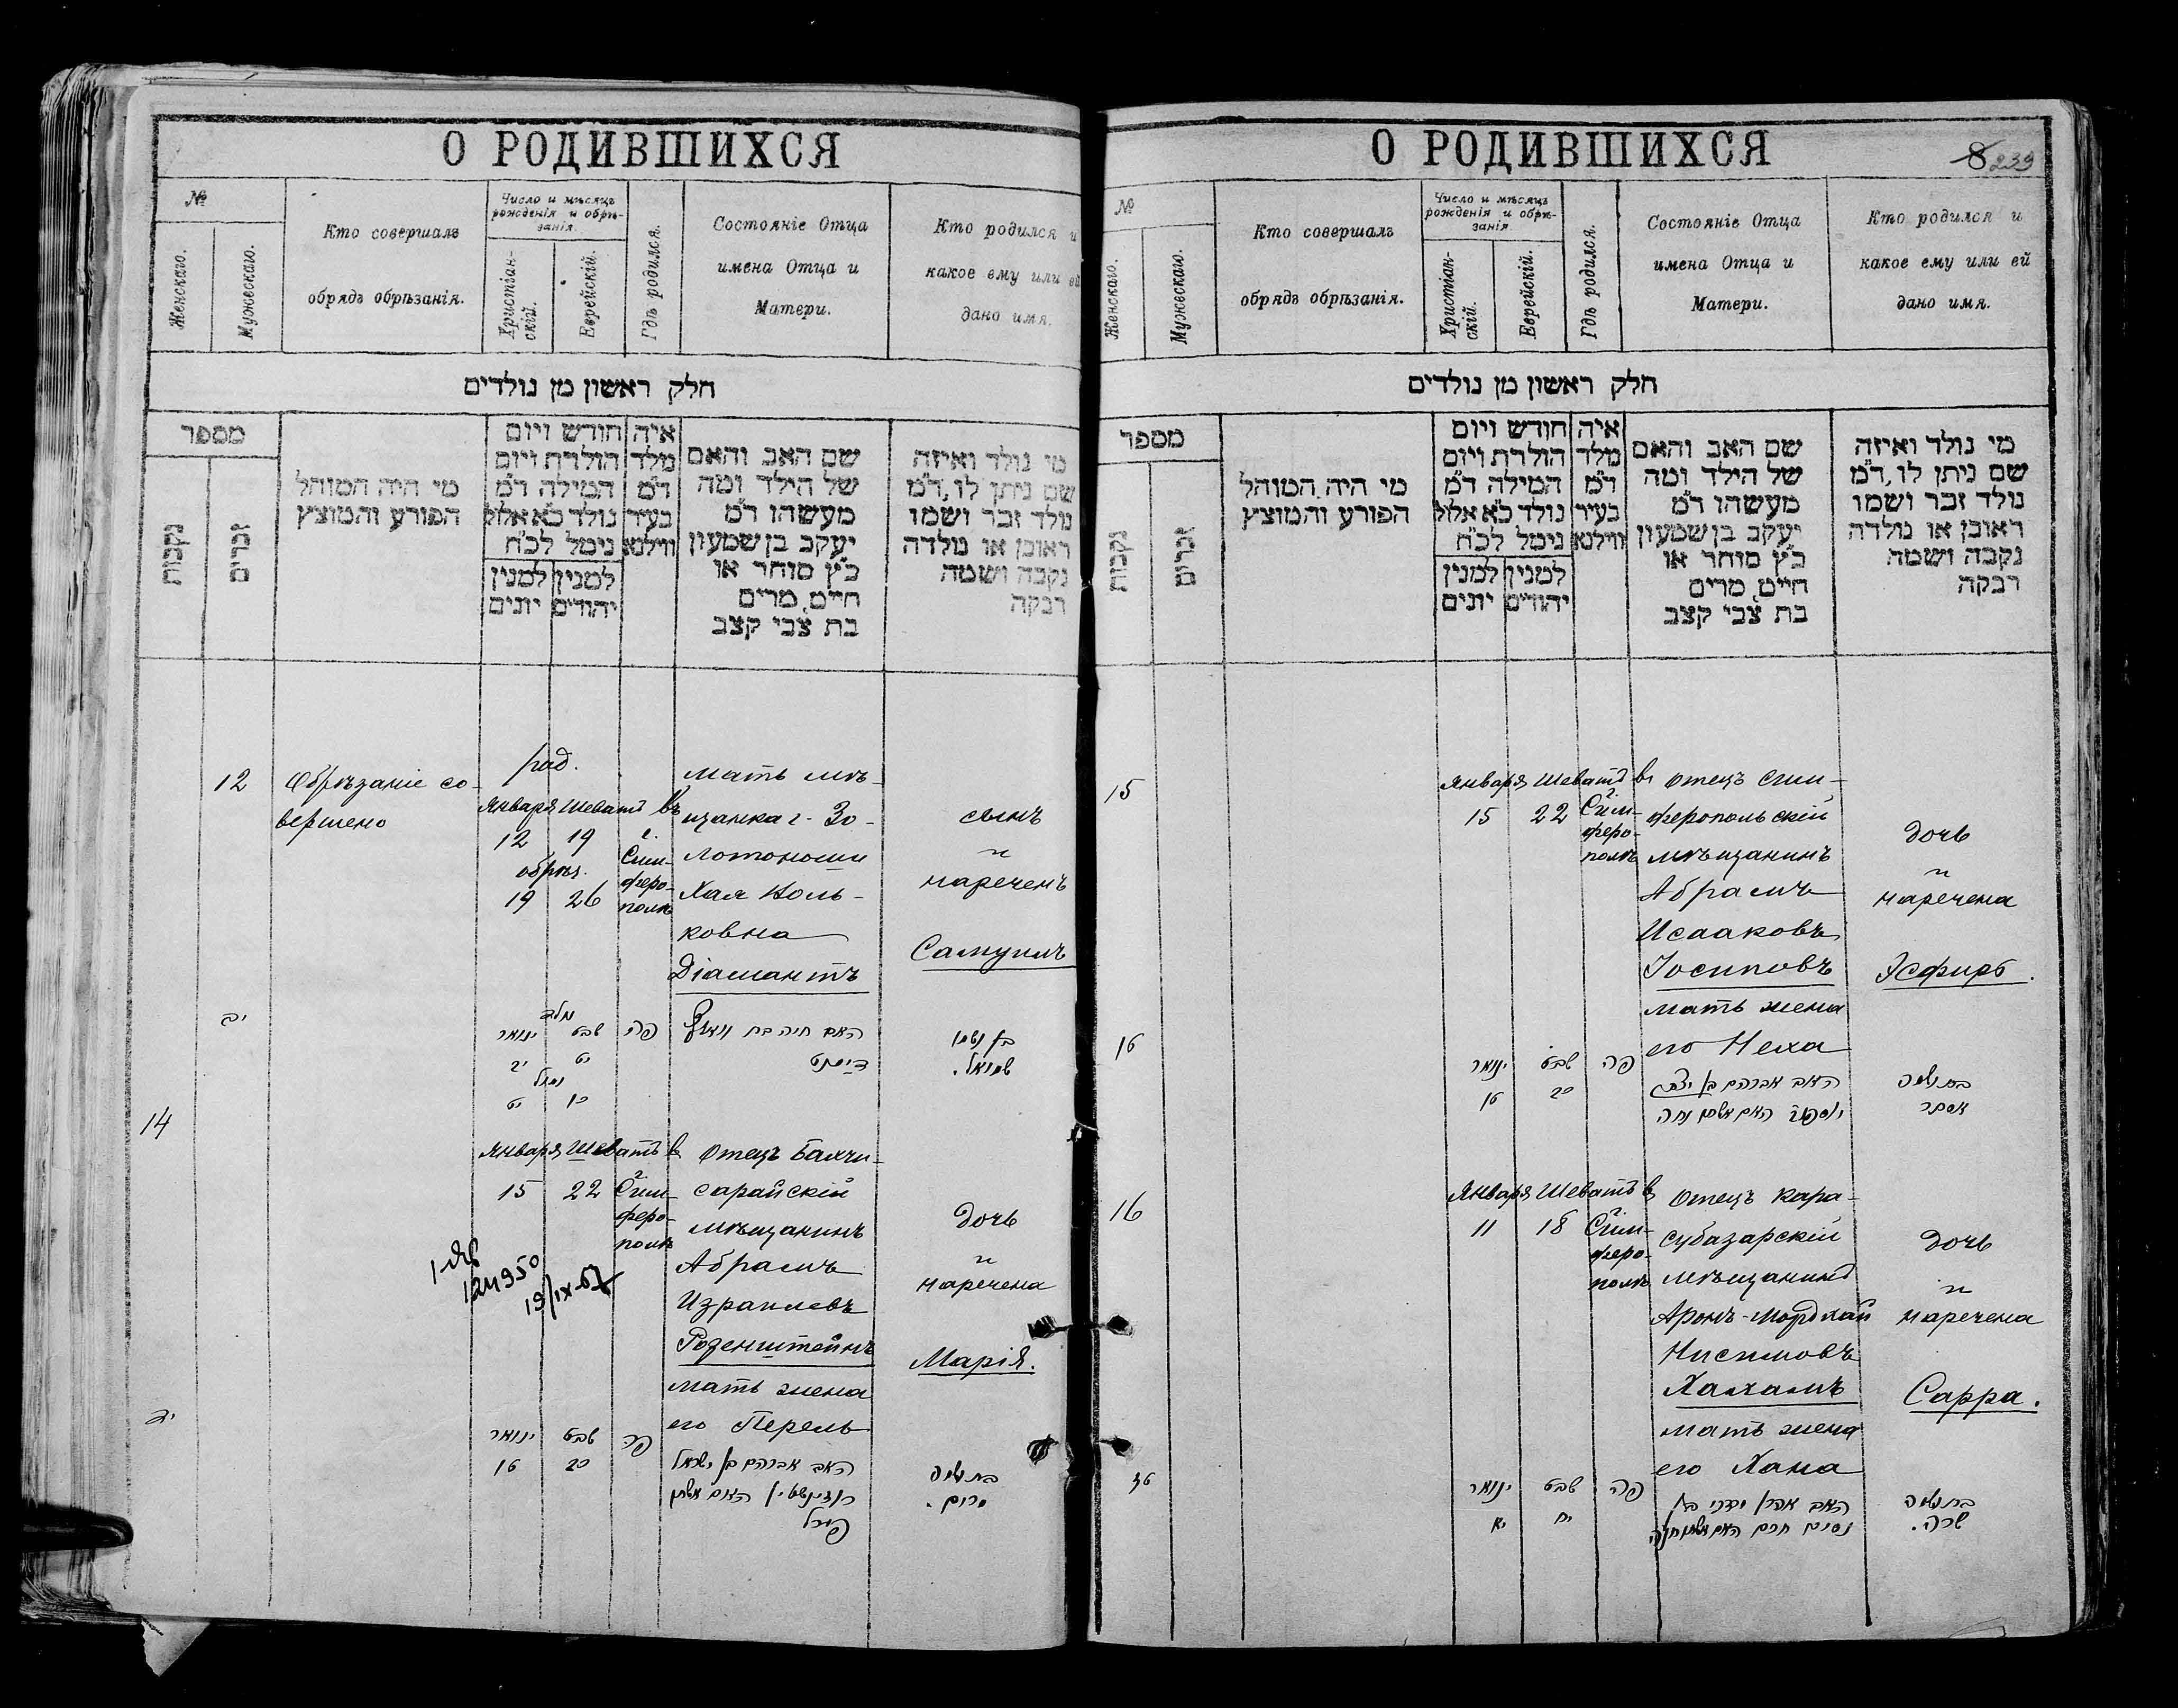 О РОДИВШИХСЯ
№
Женскаго.
Мужескаго.
Кто совершалъ
обрядъ обрѣзанія.
Число и мѣсяцъ
рожденія и обрѣ-
занія.
Христіан-
скій.
Еврейскій.
Гдѣ родился.
Состояніе Отца
имена Отца и
Матери.
Кто родился и
какое ему или ей
дано имя.
חלק ראשון מן נולדים
מספר
נקבות
זכרים
מי היה המוהל
הפורע והמוצץ
חודש ויום
הולדת ויום
המילה ד״מ
נולד כ״א אלול
נימל לכ״ח
למנין למנין
יהודים יונים
איה
מלד
ד״מ
בעיר
ווילנא
שם האב והאם
של הילד ומה
מעשהו ד״מ
יעקב בן שמעון
כ״ץ סוחר או
חייט מרים
בת צבי קצב
מי נולד ואיזה
שם ניתן לו, ד״מ
נולד זכר ושמו
ראובן או נולדה
נקבה ושמה
רבקה
12
Обрѣзаніе со-
вершено
рад.
Января Шеватъ
12 19
обрѣз.
19 26
въ
г.
Сим-
феро-
полѣ
мать мѣ-
щанка г. Зо-
лотоноши
Хая Воль-
ковна
Діамантъ
сынъ
и
нареченъ
Самуилъ
יב
ינואר שבט
יב יט
יט כו
פה
האם חיה בת
שמואל.
14
Января Шеватъ
15 22
в
г.
Сим-
феро-
полѣ
Отецъ Бахчи-
сарайскій
мѣщанинъ
Абрамъ
Израилевъ
Розенштейнъ
мать жена
его Перель
дочь
и
наречена
Марія.
124950
19/IX-67
יד
ינואר שבט
טו כב
פה
האב אברהם בן ישראל
רוזינשטיין האם אשתו
פערל
מרים.
О РОДИВШИХСЯ
8 239
№
Женскаго.
Мужескаго.
Кто совершалъ
обрядъ обрѣзанія.
Число и мѣсяцъ
рожденія и обрѣ-
занія.
Христіан-
скій.
Еврейскій.
Гдѣ родился.
Состояніе Отца
имена Отца и
Матери.
Кто родился и
какое ему или ей
дано имя.
חלק ראשון מן נולדים
מספר
נקבות
זכרים
מי היה המוהל
הפורע והמוצץ
חודש ויום
הולדת ויום
המילה ד״מ
נולד כ״א אלול
נימל לכ״ח
למנין למנין
יהודים יונים
איה
מלד
ד״מ
בעיר
ווילנא
שם האב והאם
של הילד ומה
מעשהו ד״מ
יעקב בן שמעון
כ״ץ סוחר או
חייט מרים
בת צבי קצב
מי נולד ואיזה
שם ניתן לו, ד״מ
נולד זכר ושמו
ראובן או נולדה
נקבה ושמה
רבקה
15
Января Шеватъ
15 22
в
г.
Сим-
феро-
полѣ
Отецъ Сим-
феропольскій
мѣщанинъ
Абрамъ
Исааковъ
Іосиповъ
мать жена
его Неха
дочь
и
наречена
Эсфирь.
טו
ינואר שבט
טו כב
פה
האב אברהם בן
האם אשתו נחה
אסתר
16
Января Шеватъ
11 18
в
г.
Сим-
феро-
полѣ
Отецъ Кара-
субазарскій
мѣщанинъ
Аронъ-Мордхай
Нисимовъ
Хахамъ
мать жена
его Хана
дочь
и
наречена
Сарра.
טז
ינואר שבט
יא יח
פה
האב אהרן מרדכי בן
נסים חכם האם אשתו חנה
שרה.